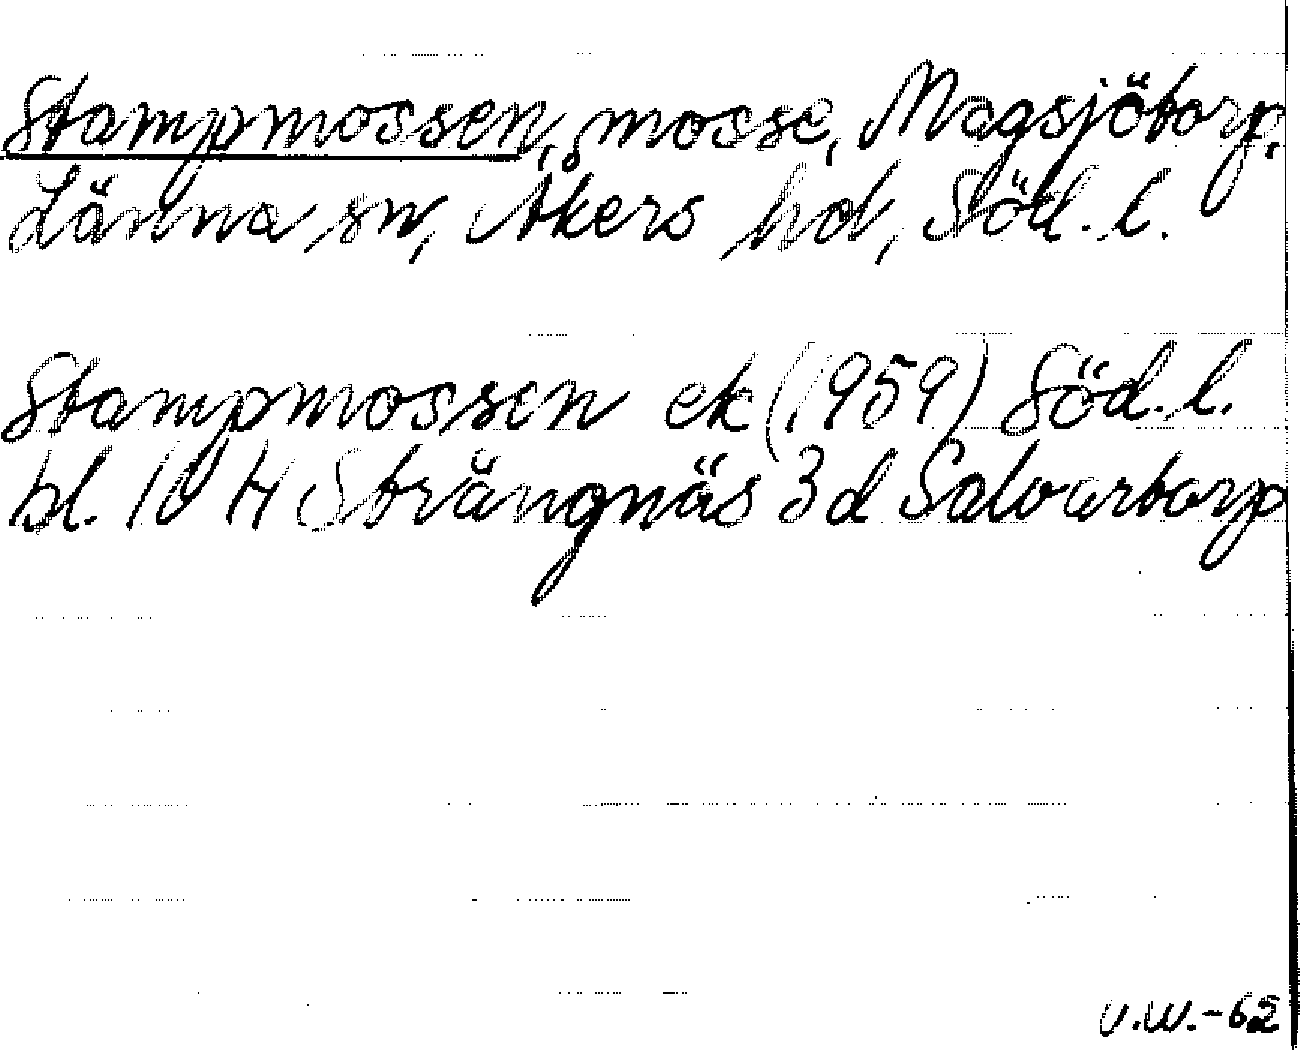 Stampmossen, mosse, Magsjötorp,
Länna sn, Åkers hd, Söd. l.
Stampmossen ek (1959) Söd. l.
bl. 10 H Strängnäs 3d Salvartorp
U.W.-62